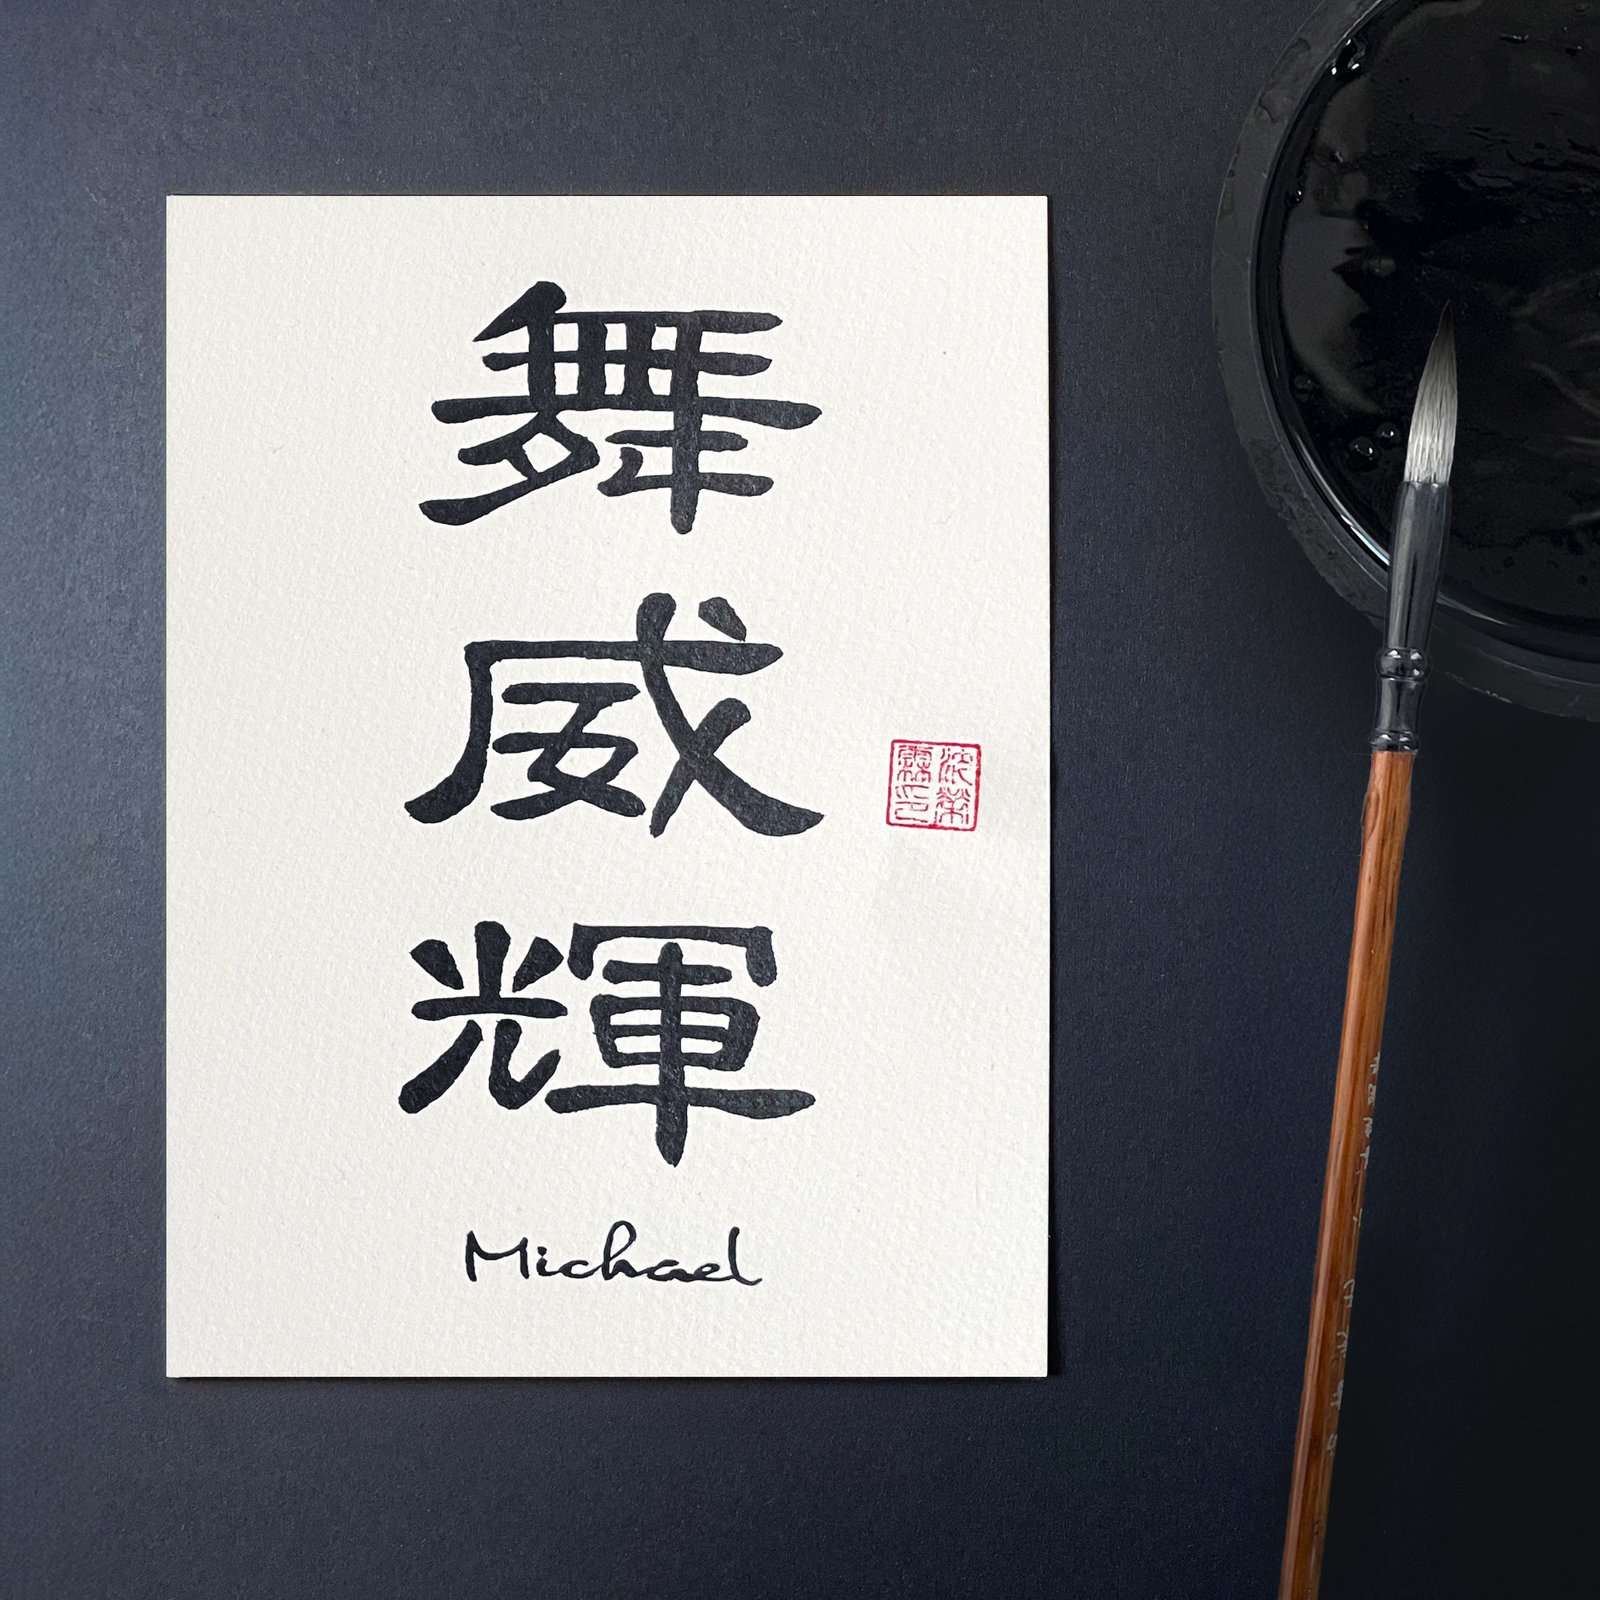 舞
威
輝
Michael